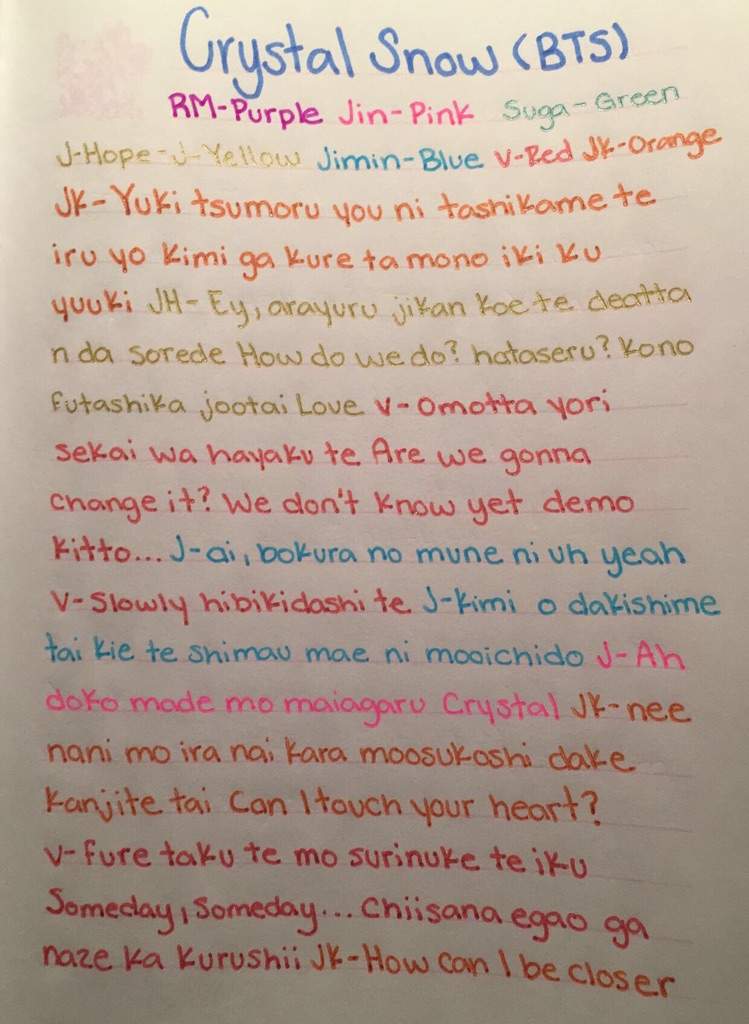 Crystal Snow (BTS)
RM-Purple Jin-Pink Suga-Green
J-Hope-J-Yellow Jimin-Blue V-Red JK-Orange
JK-Yuki tsumoru you ni tashikame te
iru yo kimi ga kure ta mono iki ku
yuuki JH-Ey, arayuru jikan koe te deatta
n da sorede How do we do? hataseru? kono
futashika jootai Love V-omotta yori
sekai wa hayaku te Are we gonna
change it? We don't know yet demo
kitto... J-ai, bokura no mune ni uh yeah
V-Slowly hibikidashi te J-kimi o dakishime
tai kie te shimau mae ni mooichido J-Ah
doko made mo maiagaru Crystal JK-nee
nani mo ira nai kara moosukoshi dake
kanjite tai Can I touch your heart?
V-fure taku te mo surinuke te iku
Someday, Someday... Chiisana egao ga
naze ka kurushii JK-How can I be closer